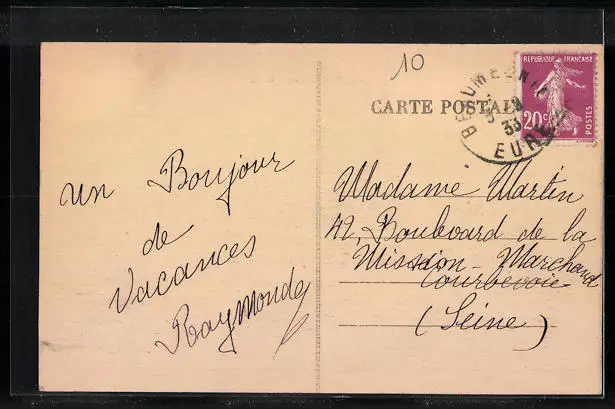 10
CARTE POSTALE
REPUBLIQUE FRANÇAISE
20c
POSTES
33
EURE
un Bonjour
de
Vacances
Raymonde
Madame Martin
42, Boulevard de la
Mission-Marchand
Courbevoie
(Seine)